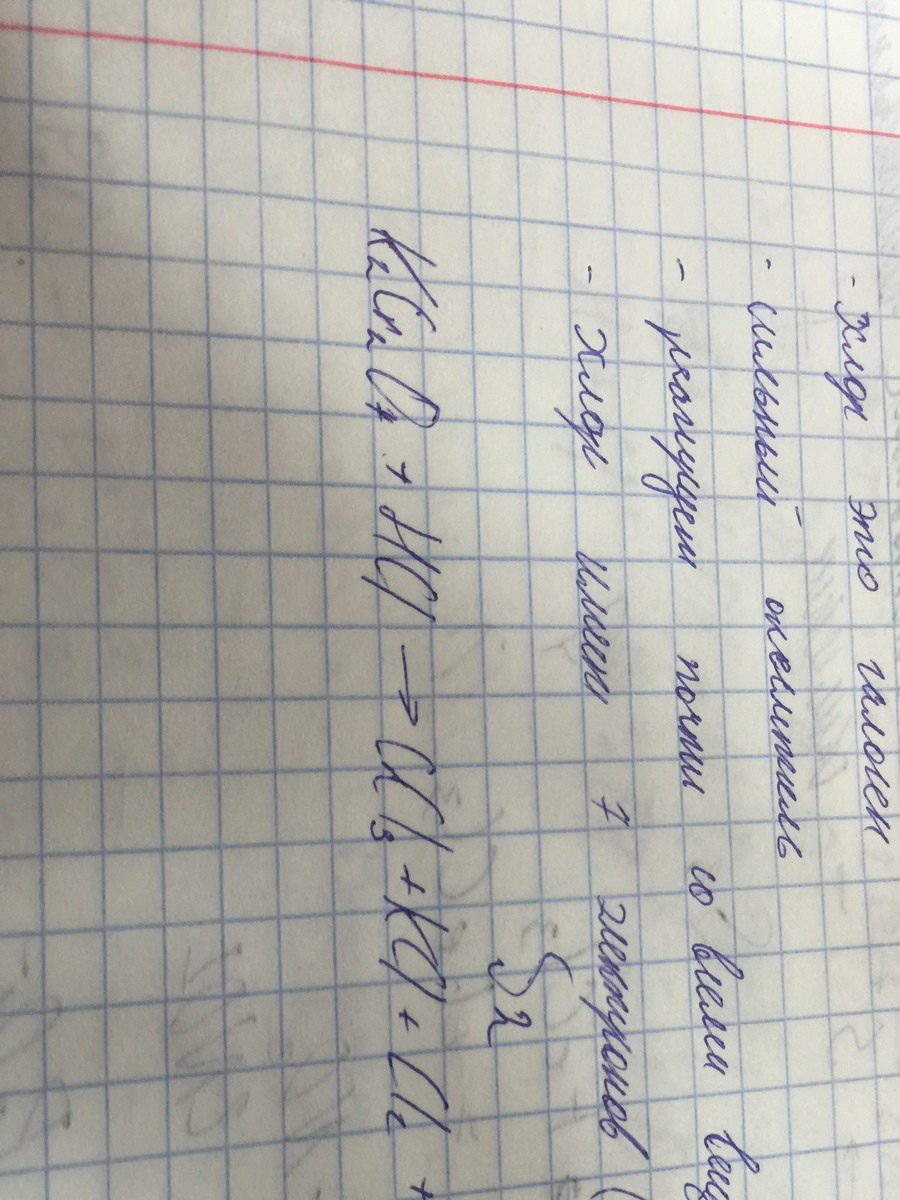 - Хлор это галоген
- сильный окислитель
- реагирует почти со всеми
- Хлор имеет 7 электронов (
S 2
K₂Cr₂O₇ + HCl → CrCl₃ + KCl + Cl₂ +